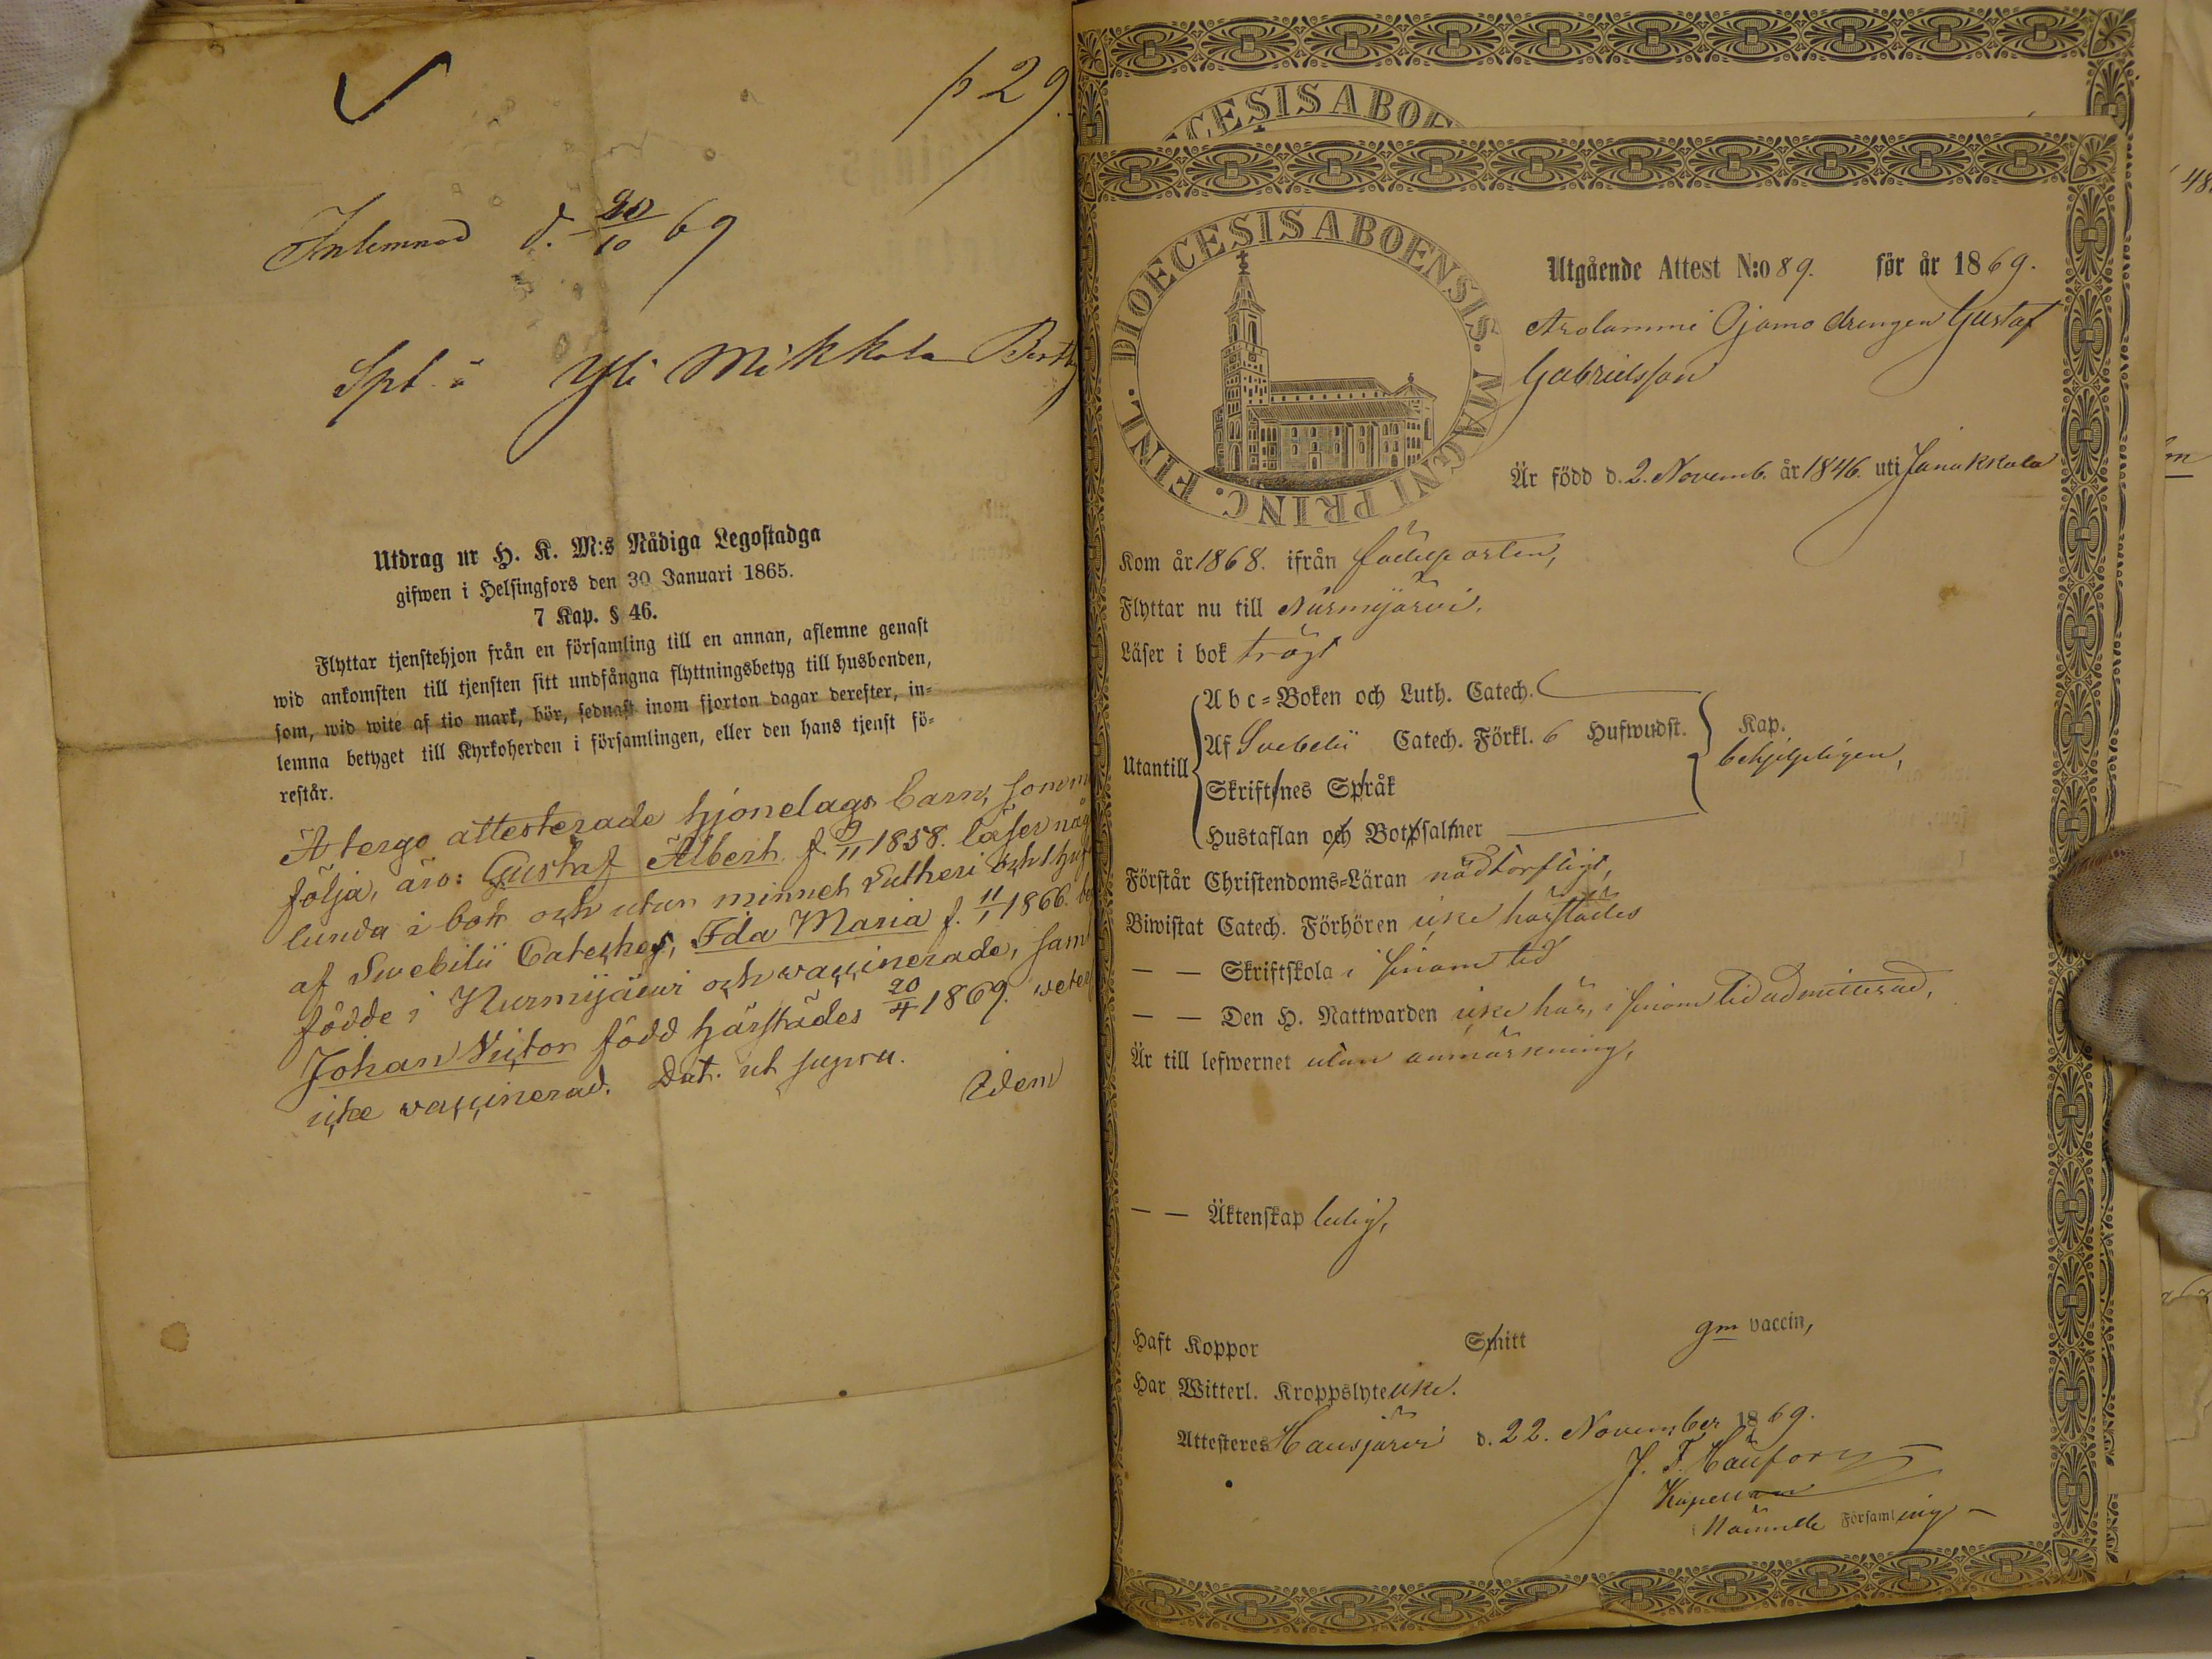 p 29.
Inlemnad d. 20/10 69
Spt. å Yli Mikkola
Utdrag ur H. K. M:s Nådiga Legostadga
gifwen i Helsingfors den 30 Januari 1865.
7 Kap. § 46.
Flyttar tjenstehjon från en församling till en annan, aflemne genast
wid ankomsten till tjensten sitt undfångna flyttningsbetyg till husbonden,
som, wid wite af tio mark, bör, sednast inom fjorton dagar derefter, in=
lemna betyget till Kyrkoherden i församlingen, eller den hans tjenst fö=
restår.
A tergo attesterade hjonelags barn, som
följa, äro: Gustaf Albert f. 9/11 1858. läser
lunda i bok och utur minnet Lutheri och 1
af Swebilii Cateches, Ida Maria f. 11/1 1866.
födde i Nurmijärwi och vaccinerade, samt
Johan Victor född härstädes 20/4 1869.
icke vaccinerad. Dat. ut supra.
Idem
CESIS ABOE
DIOECESIS ABOENSIS. MAGNI PRINC. FINL.
Utgående Attest N:o 89. för år 1869.
Arolammi Ojamo drengen Gustaf
Gabrielsson
Är född d. 2. Novemb. år 1846. uti Janakkala
Kom år 1868. ifrån födelseorten,
Flyttar nu till Nurmijärvi.
Läser i bok trögt
Utantill
A b c=Boken och Luth. Catech.
Af Svebelii Catech. Förkl. 6 Hufwudst.
Skriftenes Språk
Hustaflan och Botpsalmer
Kap.
behjelpligen,
Förstår Christendoms=Läran nödtorftigt,
Biwistat Catech. Förhören icke härstädes
— — Skriftskola i sinom tid
— — Den H. Nattwarden icke här, i sinom tid admitterad,
Är till lefwernet utan anmärkning,
— — Äktenskap ledig,
Haft Koppor Smitt gm vaccin,
Har Witterl. Kroppslyte icke.
Attesteres Hausjärvi d. 22. November 1869.
J. F.
Kapellan
i nämnde Församling
48